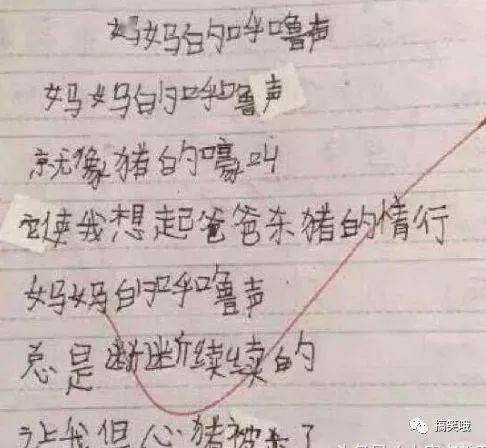 妈妈的呼噜声
妈妈的呼噜声
就像猪的嚎叫
它使我想起爸爸杀猪的情行
妈妈的呼噜声
总是断断续续的
让我但心猪被杀了
搞笑哦